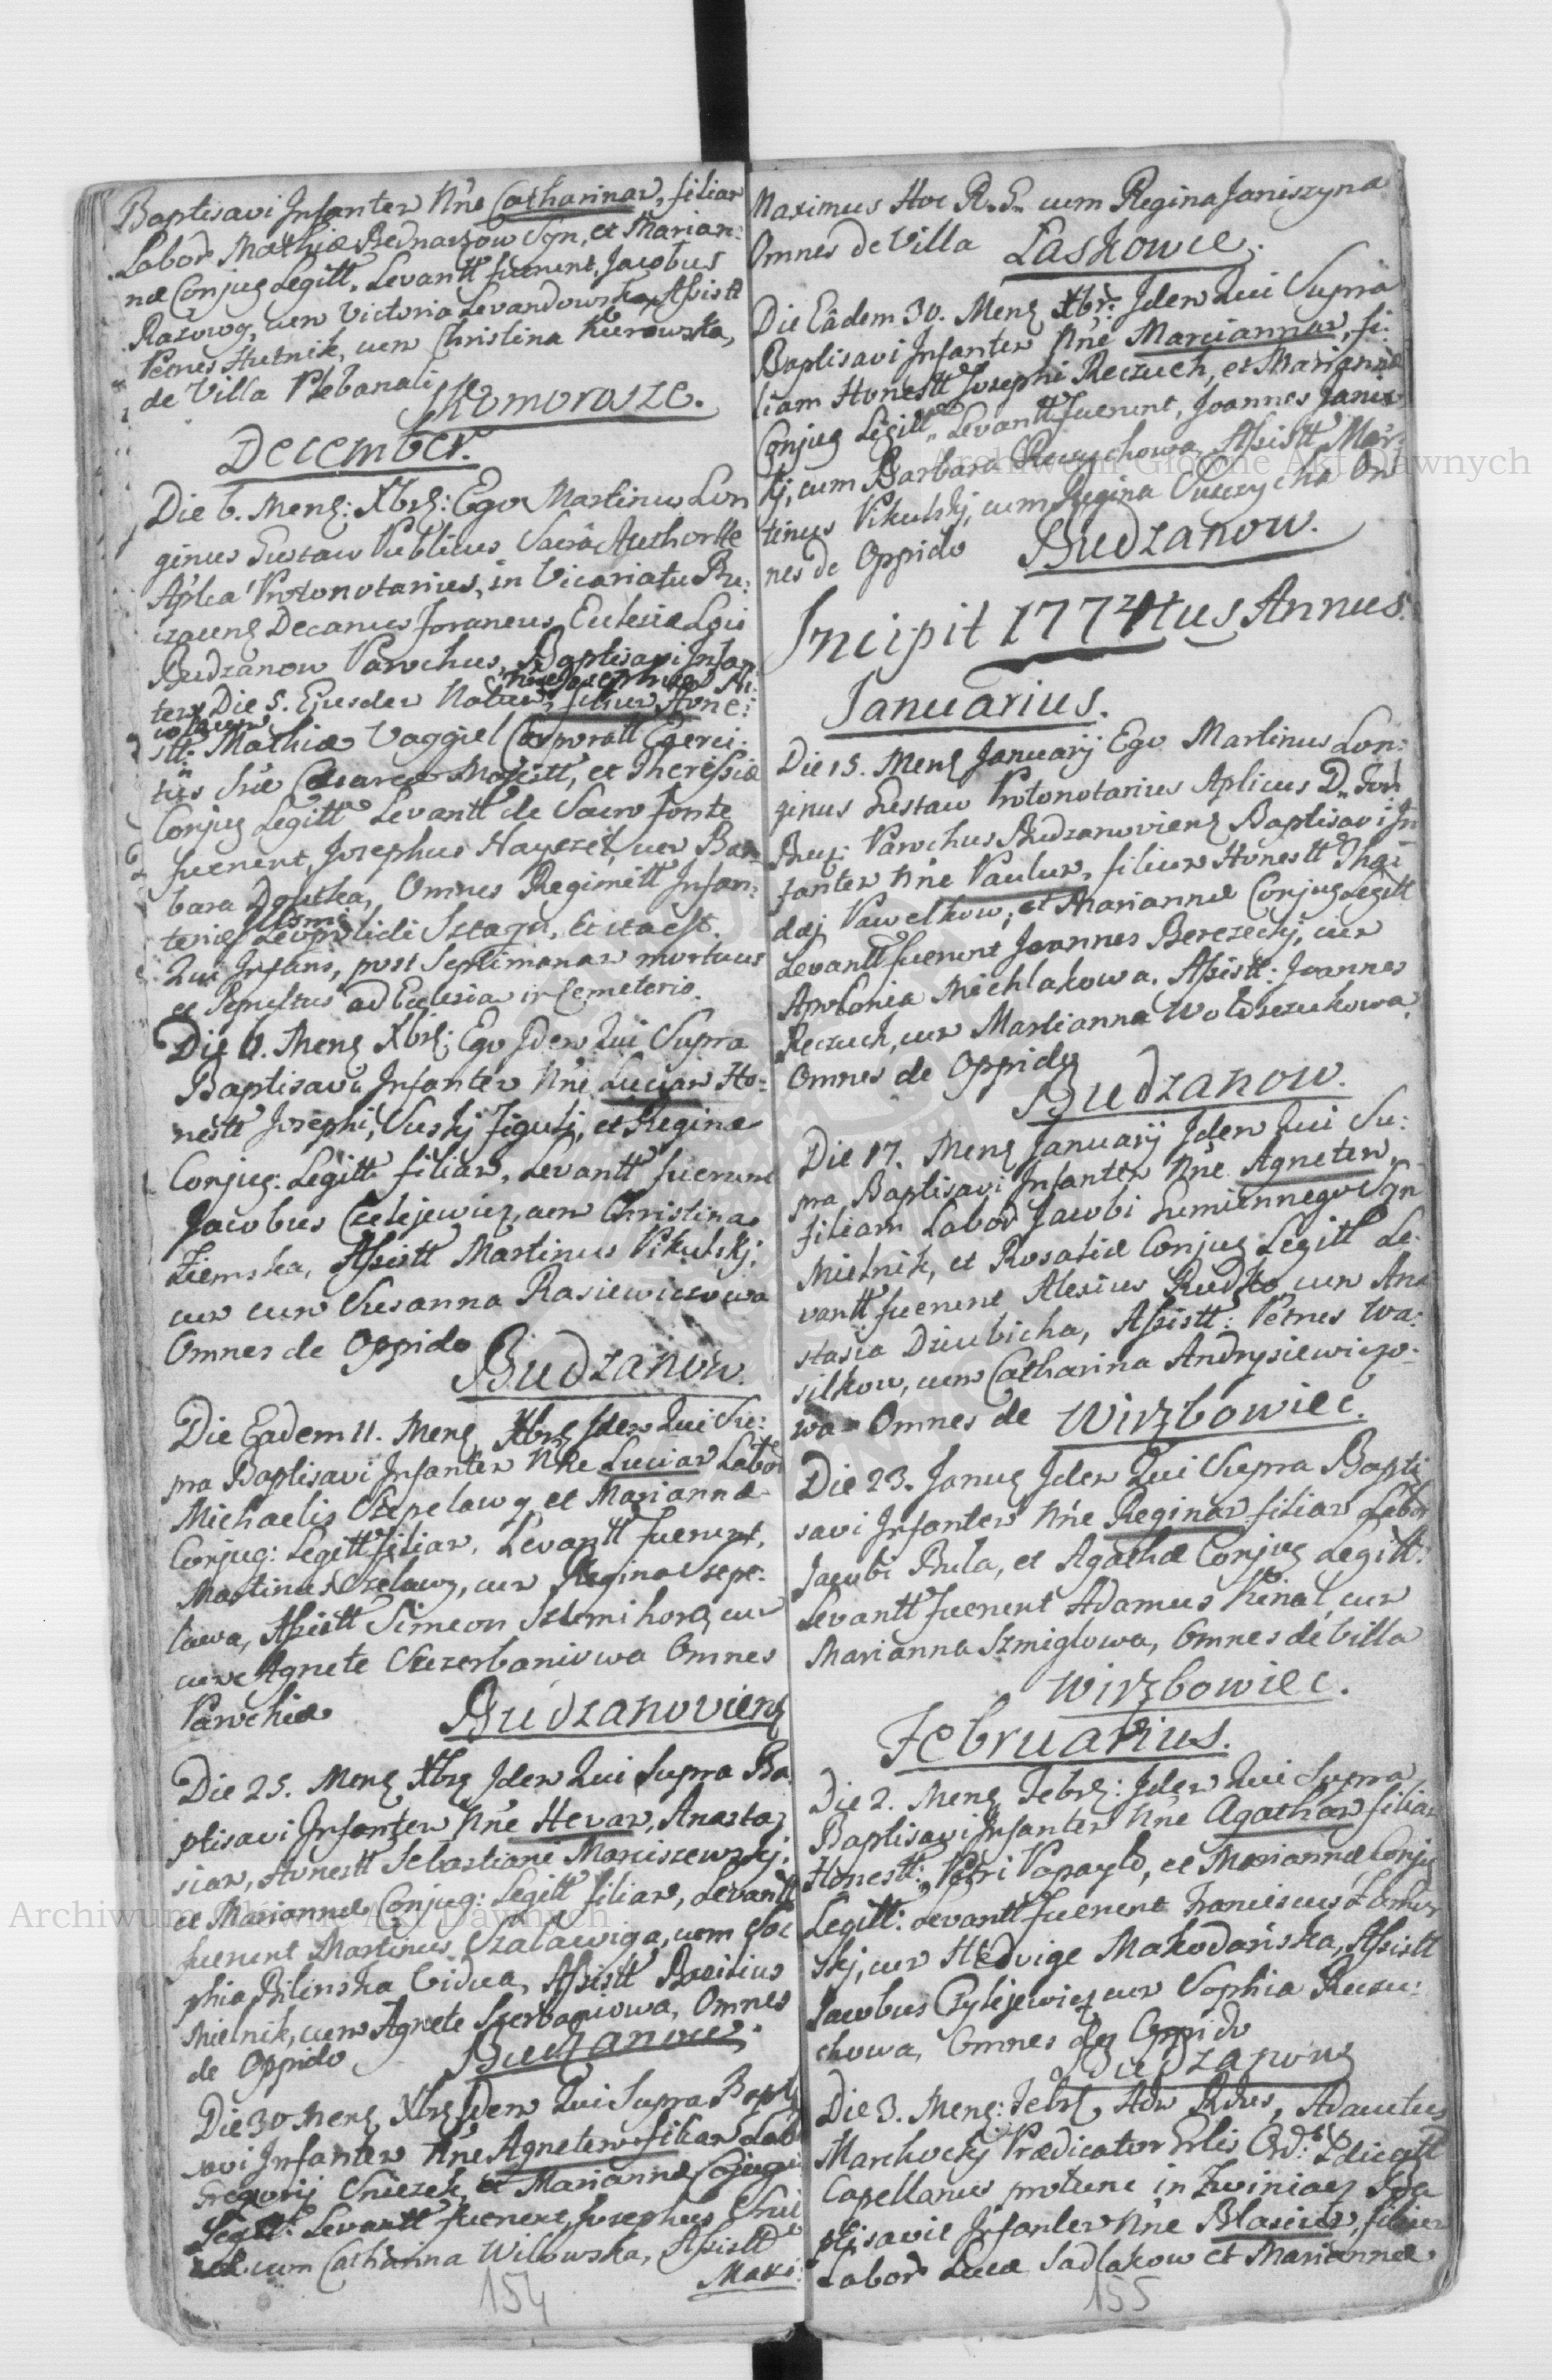 Baptisavi Infantem Nne Catharinam, filiam
Labor Mathiæ Bednarzow Syn, et Marian:
næ Conjug Legitt. Levantt fuerunt, Jacobus
cum Victoria Levandowska, Assistt
Hutnik, cum Christina
de Villa Plebanali
Komorosze.
December.
Die 6. Mens: Xbrs: Ego Martinus Lon
ginus Gustaw Publicus Sacrâ Authortte
Aplca Protonotarius, in Vicariatu Bu:
Decanus foraneus, Ecclesiæ Lois
Budzanow Parochus, Baptisavi Infan
tem Die 5. Ejusdem Natum, filium Hone:
stt. Mathiæ Vaggiel Corporatt Exerci:
tus Suæ Cæsareæ Majestt, et Theressiæ
Conjug Legitt Levantt de Sacro fonte
fuerunt, Josephus Hayezel, cum Bar
bara Omnes Regimētt Infan:
teriæ
Qui Infans, post Septimanam mortuus
et Sepultus ad Ecclesiam in Cemeterio.
Die 11. Mens Xbrs: Ego Idem Qui Supra
Baptisavi Infantem Nne Luciam Ho:
nestt Josephi, Figuli, et Reginæ
Conjug: Legitt filiam, Levantt fuerunt
Jacobus Czelejewicz, cum Christina
Ziemska, Assistt Martinus Pikulskj,
cum cum Susanna Rasiewiczowa
Omnes de Oppido
Budzanow.
Die Eadem 11. Mens Xbrs Idem Qui Su:
pra Baptisavi Infantem Nne Luciam Labor
Michaelis et Mariannæ
Conjug: Legitt filiam, Levantt fuerunt,
Martinus cum Regina Szepe:
lawa, Assistt Simeon cum
cum Agnete Szczerbaniowa Omnes
Parochiæ
Budzanoviens
Die 25. Mens Xbrs Idem Qui Supra Ba
ptisavi Infantem Nne Hevam, Anasta
siam, Honestt Sebastiani Marciszewskj:
et Mariannæ Conjug: Legitt filiam, Levantt
fuerunt Martinus Szalawiga, cum So
phia Bilinska Vidua, Assistt Basilius
Mielnik, cum Agnete Szerbaniowa, Omnes
de Oppido
Budzanow.
Die 30 Mens Xbrs Idem Qui Supra Bapti
savi Infantem Nne Agnetem filiam Labo
Gregorij Sniezek et Mariannæ Conjug
Legitt. Levantt fuerunt, Josephus
cum Catharina Witowska, Assistt
Maxi:
154
Maximus Hoc R. G. cum Regina Janiszyna
Omnes de Villa Laskowce.
Die Eâdem 30. Mens Xbr: Idem Qui Supra
Baptisavi Infantem Nne Mariannam, fi:
liam Honestt Josephi Reczuch, et Mariannæ
Conjug Legitt. Levantt fuerunt, Joannes Janic
kj, cum Barbara Assistt Mar
tinus Pikulskj, cum Regina Om
nes de Oppido Budzanow.
Incipit 1774tus Annus.
Januarius.
Die 15. Mens Januarij Ego Martinus Lon:
ginus Gustaw Protonotarius Aplicus D. For
Parochus Budzanoviens Baptisavi In
fantem Nne Paulum, filium Honestt Tha
dæj Pawelkow, et Mariannæ Conjug Legitt
Levantt fuerunt Joannes Berezeckj, cum
Apolonia Michlakowa. Assistt: Joannes
Reczuch, cum Marianna Wołoszczukowa,
Omnes de Oppido
Budzanow.
Die 17. Mens Januarij Idem Qui Su:
pra Baptisavi Infantem Nne Agnetem,
filiam Labor Jacobi Syn
Mielnik, et Rosaliæ Conjug Legitt Le
vantt fuerunt Alexius Rudko cum Ana
stasia Dziubicha, Assistt: Petrus Wa:
silkow, cum Catharina Andrysiewiczo:
wa Omnes de Wirzbowiec.
Die 23. Janus Idem Qui Supra Bapti
savi Infantem Nne Reginam filiam Labor
Jacobi Bula, et Agathæ Conjug Legitt:
Levantt fuerunt Adamus Kinal, cum
Marianna Szmiglowa, Omnes de Villa
Wirzbowiec.
Februarius.
Die 2. Mens Febrs: Idem Qui Supra
Baptisavi Infantem Nne Agatham filiam
Honestt: Petri et Mariannæ Conjug
Legitt: Levantt fuerunt Franciscus
skj, cum Hedvige Makodańska, Assistt
Jacobus Czylejewicz cum Sophia Reczu:
chowa, Omnes de Oppido
Budzanow
Die 3. Mens: Febrs, Adm Rdus, Adauctus
Marchockj Prædicator
Capellanus protunc in Zwiniacz Ba
ptisavit Infantem Nne Blasium, filium
Labor Lucæ Sadlakow et Mariannæ
155
Archiwum Główne Akt Dawnych
Archiwum Główne Akt Dawnych